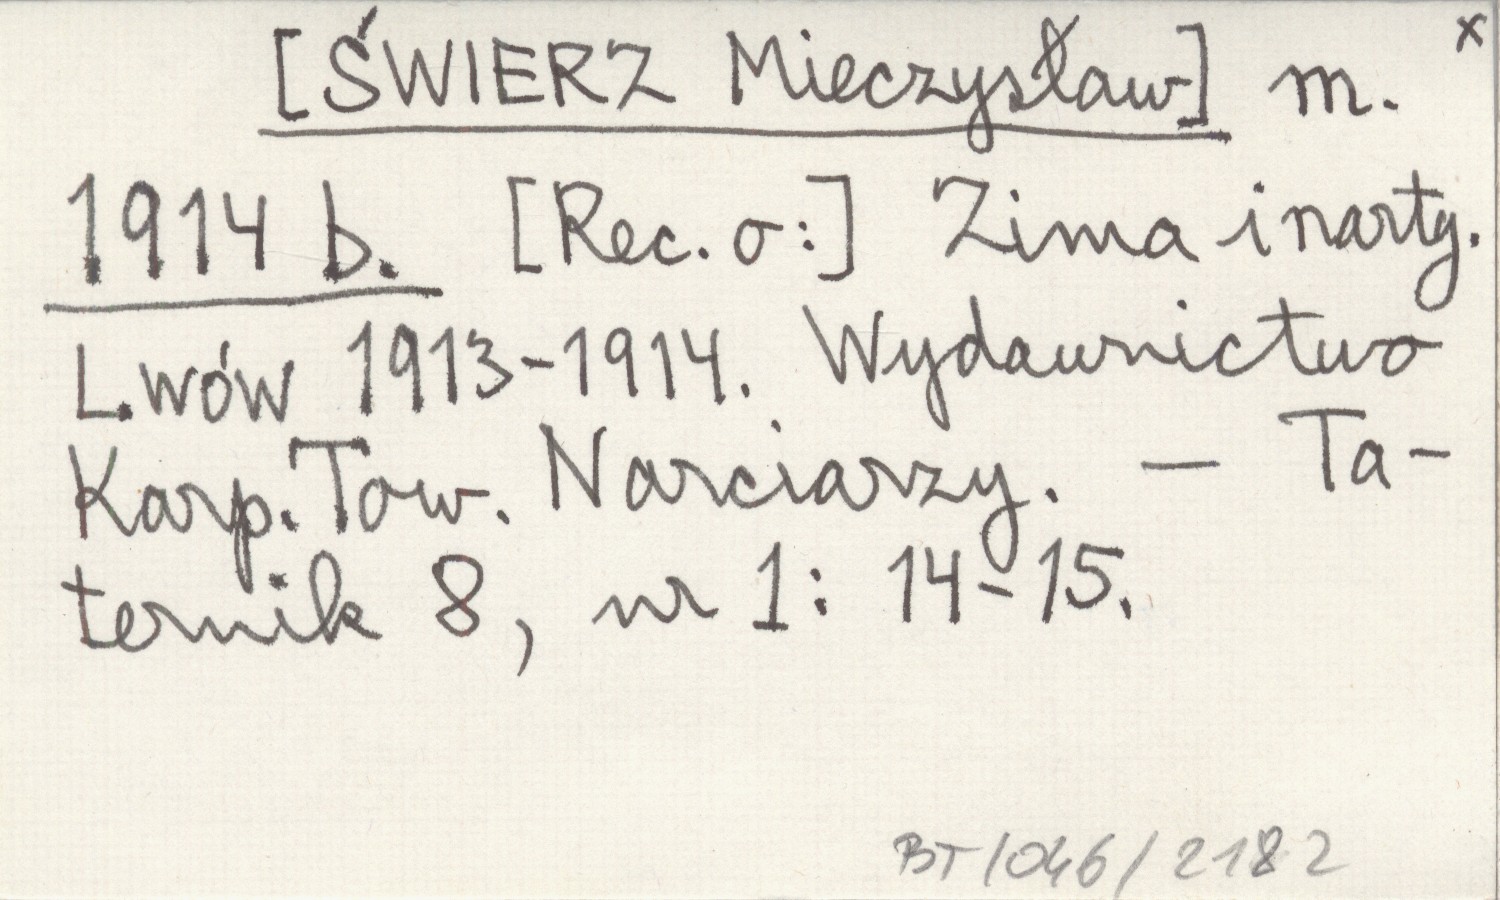 [ŚWIERZ Mieczysław] m. x
1914 b. [Rec. o:] Zima i narty.
Lwów 1913-1914. Wydawnictwo
Karp. Tow. Narciarzy. — Ta-
ternik 8, nr 1: 14-15.
BT/046/2182